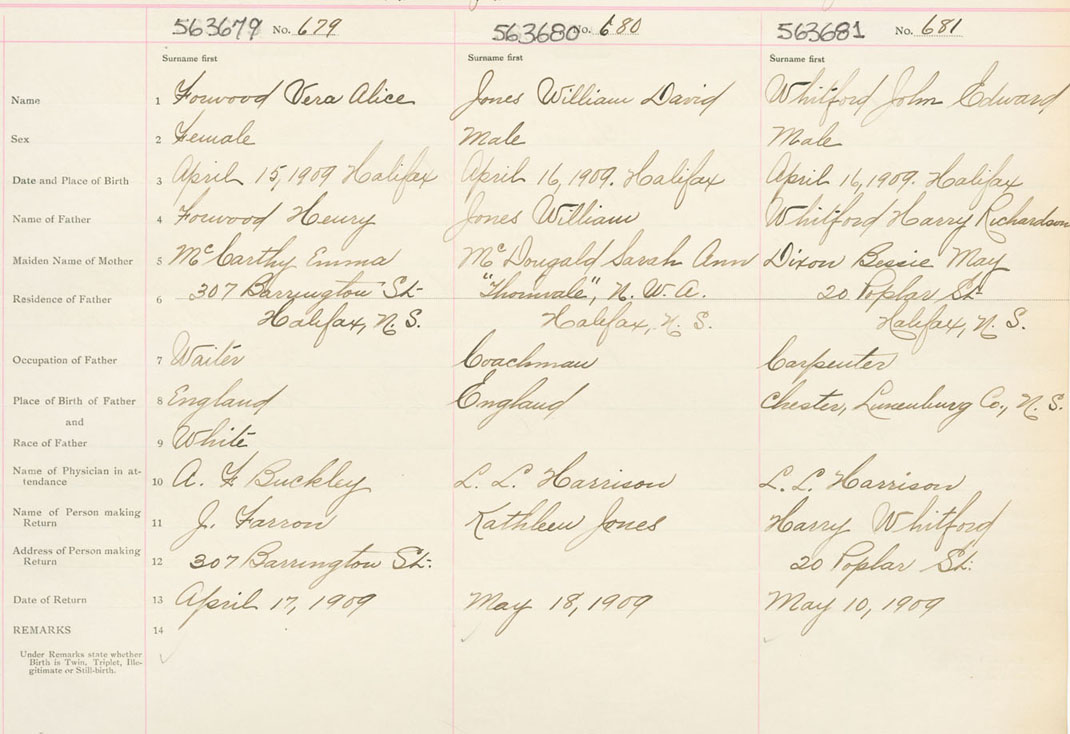 563679 No. 679 563680 No. 680 563681 No. 681
Surname first Surname first Surname first
Name 1 Forwood Vera Alice Jones William David Whitford John Edward
Sex 2 Female Male Male
Date and Place of Birth 3 April 15, 1909 Halifax April 16, 1909. Halifax April 16, 1909. Halifax
Name of Father 4 Forwood Henry Jones William Whitford Harry Richardson
Maiden Name of Mother 5 McCarthy Emma McDougald Sarah Ann Dixon Bessie May
Residence of Father 6 307 Barrington St. "Thornvale", N. W. A. 20 Poplar St.
Halifax, N. S. Halifax, N. S. Halifax, N. S.
Occupation of Father 7 Waiter Coachman Carpenter
Place of Birth of Father 8 England England Chester, Lunenburg Co., N. S.
and
Race of Father 9 White
Name of Physician in at-
tendance 10 A. F Buckley L. L. Harrison L. L. Harrison
Name of Person making
Return 11 J. Farron Kathleen Jones Harry Whitford
Address of Person making
Return 12 307 Barrington St. 20 Poplar St.
Date of Return 13 April 17, 1909 May 18, 1909 May 10, 1909
REMARKS 14
Under Remarks state whether
Birth is Twin, Triplet, Ille-
gitimate or Still-birth.